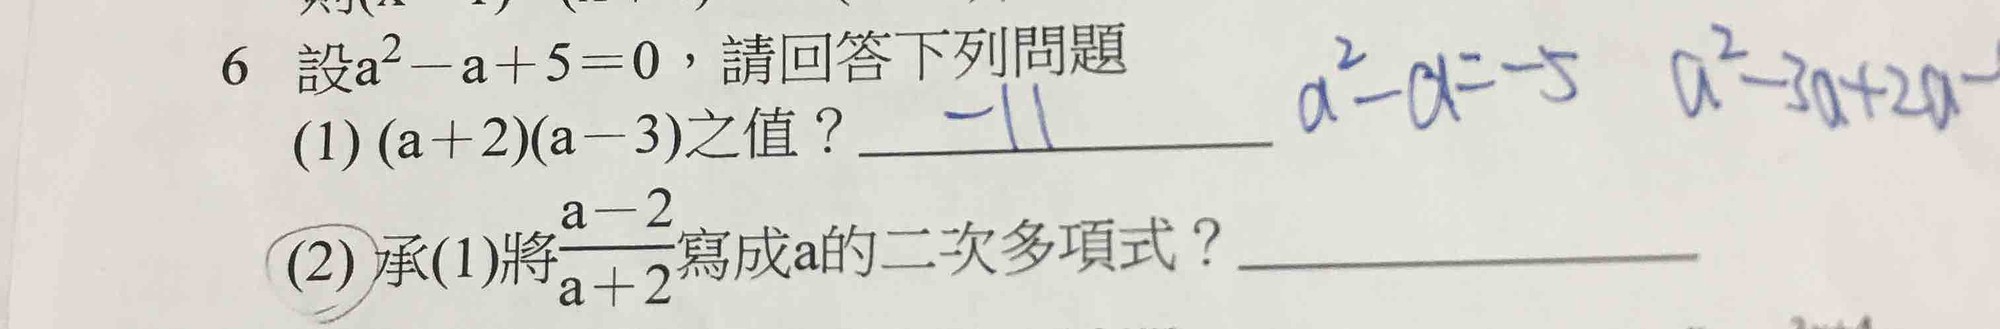 6 設a²－a＋5＝0，請回答下列問題
a²－a＝－5 a²－3a＋2a－
(1) (a＋2)(a－3)之值？ －11
(2) 承(1)將 a－2/a＋2 寫成a的二次多項式？